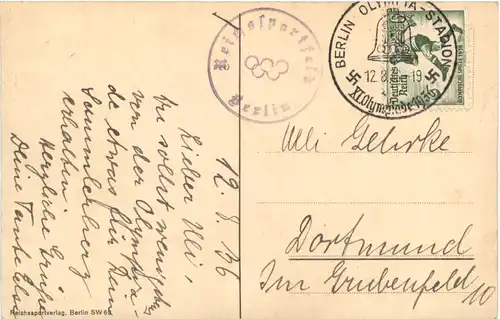 Reichssportfeld
Berlin
BERLIN OLYMPIA-STADION
12.8. 19
XI. Olympiade 1936
Deutsches Reich
12. 8. 36
Lieber Uli,
Du sollst wenigstens
von der Olympia-
de etwas für Dein
Sammlerberg
erhalten.
Herzliche Grüße
Deine Tante Else
Uli Gehrke
Dortmund
Im Grubenfeld 10
Reichssportverlag, Berlin SW 68